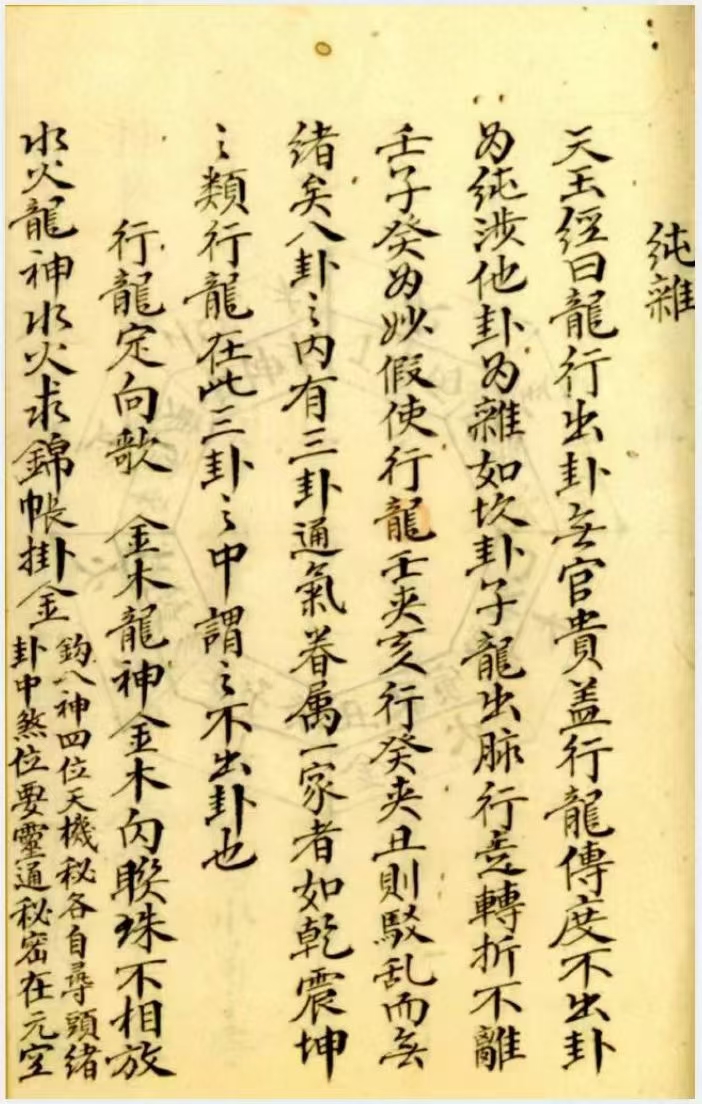 純雜
天玉經曰龍行出卦無官貴盖行龍傳度不出卦
为純涉他卦为雜如坎卦子龍出脉行度轉折不離
壬子癸为妙假使行龍壬夹亥行癸夹丑則駁乱而無
緒矣八卦之内有三卦通氣眷属一家者如乾震坤
之類行龍在此三卦之中謂之不出卦也
行龍定向歌 金木龍神金木向聯珠不相放
水火龍神水火求錦帳掛金
鈎八神四位天機秘各自尋頭緒
卦中煞位要靈通秘密在元空